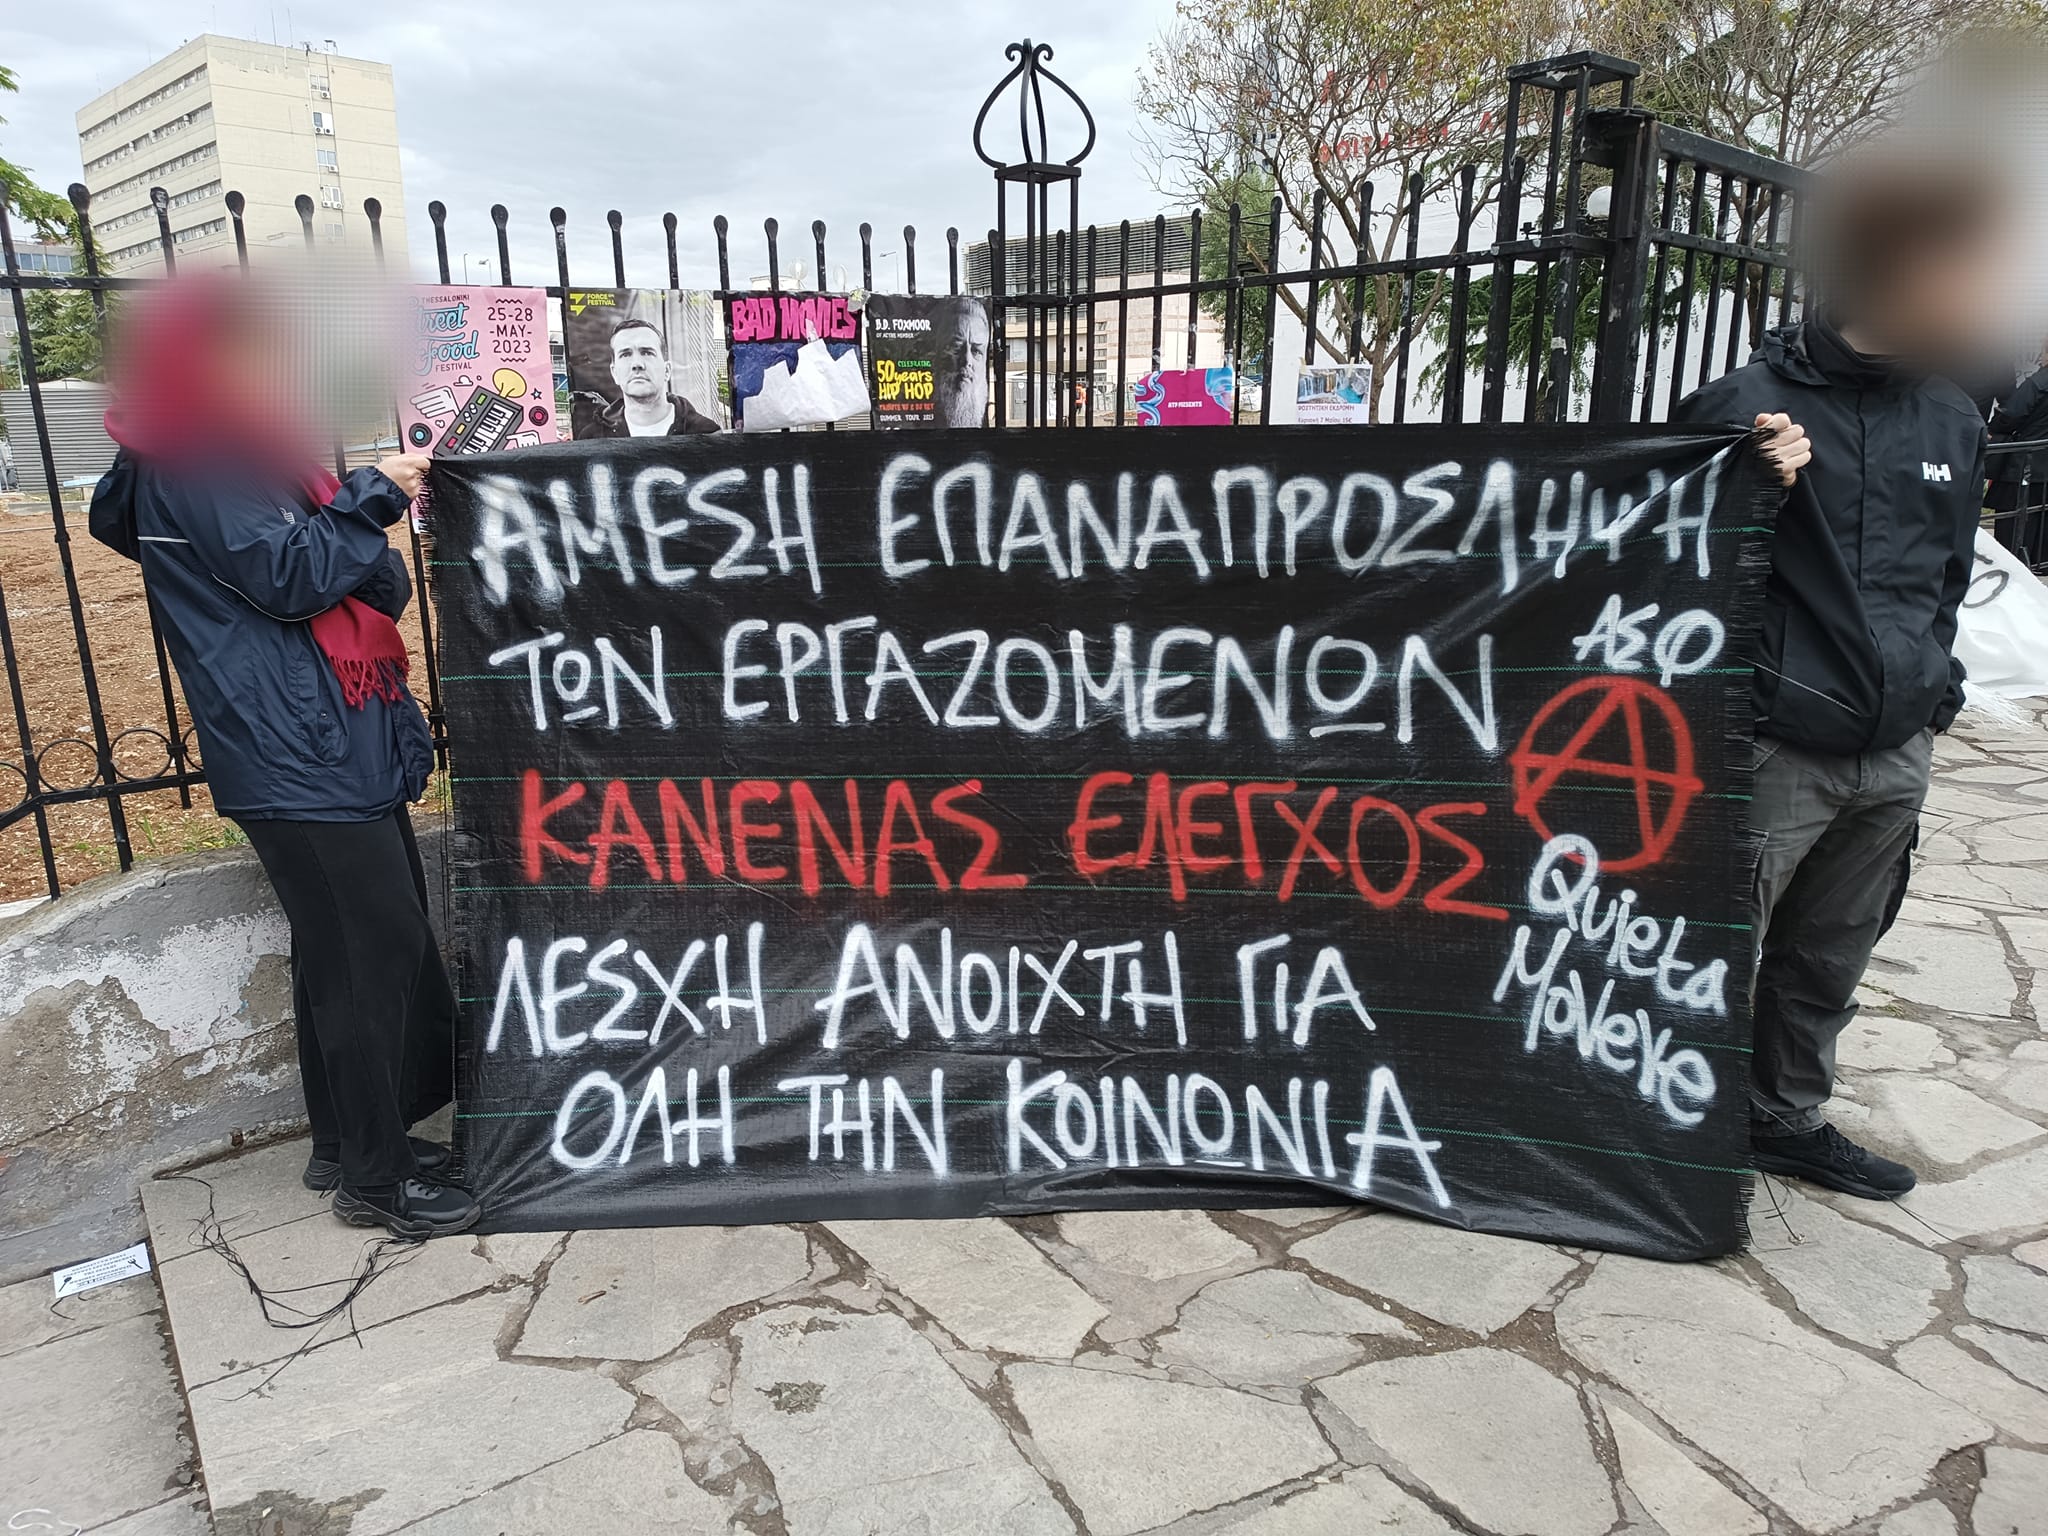 THESSALONIKI
Street
food
FESTIVAL
25-28
-MAY-
2023
FORCE
FESTIVAL
BAD MOVIES
B.D. FOXMOOR
OF ACTIVE MEMBER
CELEBRATING
50 years
HIP HOP
SUMMER TOUR 2023
ATP PRESENTS
ΦΟΙΤΗΤΙΚΗ ΕΚΔΡΟΜΗ
Κυριακή 7 Μαΐου 15€
HH
ΑΜΕΣΗ ΕΠΑΝΑΠΡΟΣΛΗΨΗ
ΤΩΝ ΕΡΓΑΖΟΜΕΝΩΝ
ΑΣΦ
A
ΚΑΝΕΝΑΣ ΕΛΕΓΧΟΣ
Quieta
Movere
ΛΕΣΧΗ ΑΝΟΙΧΤΗ ΓΙΑ
ΟΛΗ ΤΗΝ ΚΟΙΝΩΝΙΑ